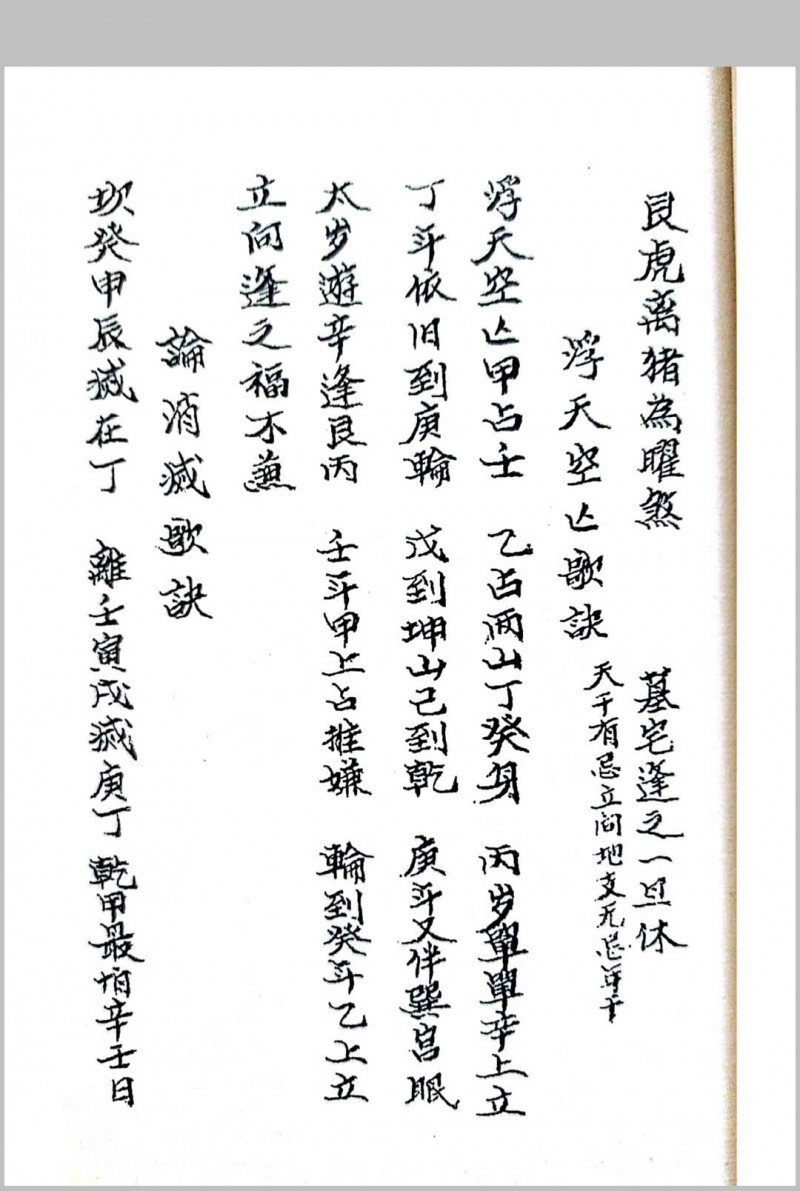 艮虎离猪為曜煞　墓宅逢之一旦休
浮天空亡歌訣　天干有忌立向地支无忌年干
浮天空亡甲占壬　乙占两山丁癸身　丙岁單單辛上立
丁斗依旧到庚輪　戊到坤山己到乾　庚斗又伴巽宫眠
太岁遊辛逢艮丙　壬斗甲上占推嫌　輪到癸斗乙上立
立向逢之福不兼
論消滅歌訣
坎癸申辰滅在丁　離壬寅戌滅庚丁　乾甲最怕辛壬日